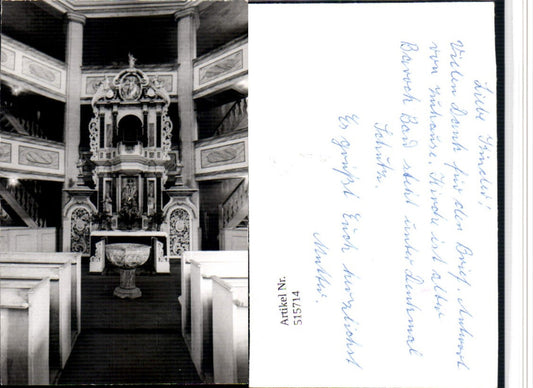 Liebe
Vielen Dank für den Brief.
von Zuhause. Kirche ist alter
Barock Bad steht unter Denkmal
Schutz.
Es grüßt Euch herzlichst
Mutter.
Artikel Nr.
515714